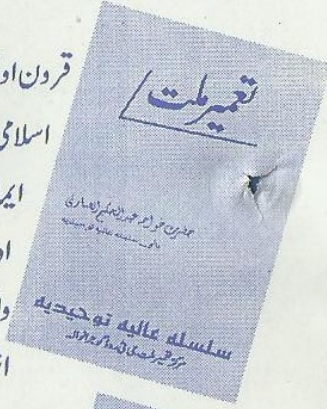 قرون او
اسلامی
ایم
او
وا
ا
تعمیر ملت
حضرت خواجہ عبدالحکیم انصاری
بانی سلسلہ عالیہ توحیدیہ
سلسلہ عالیہ توحیدیہ